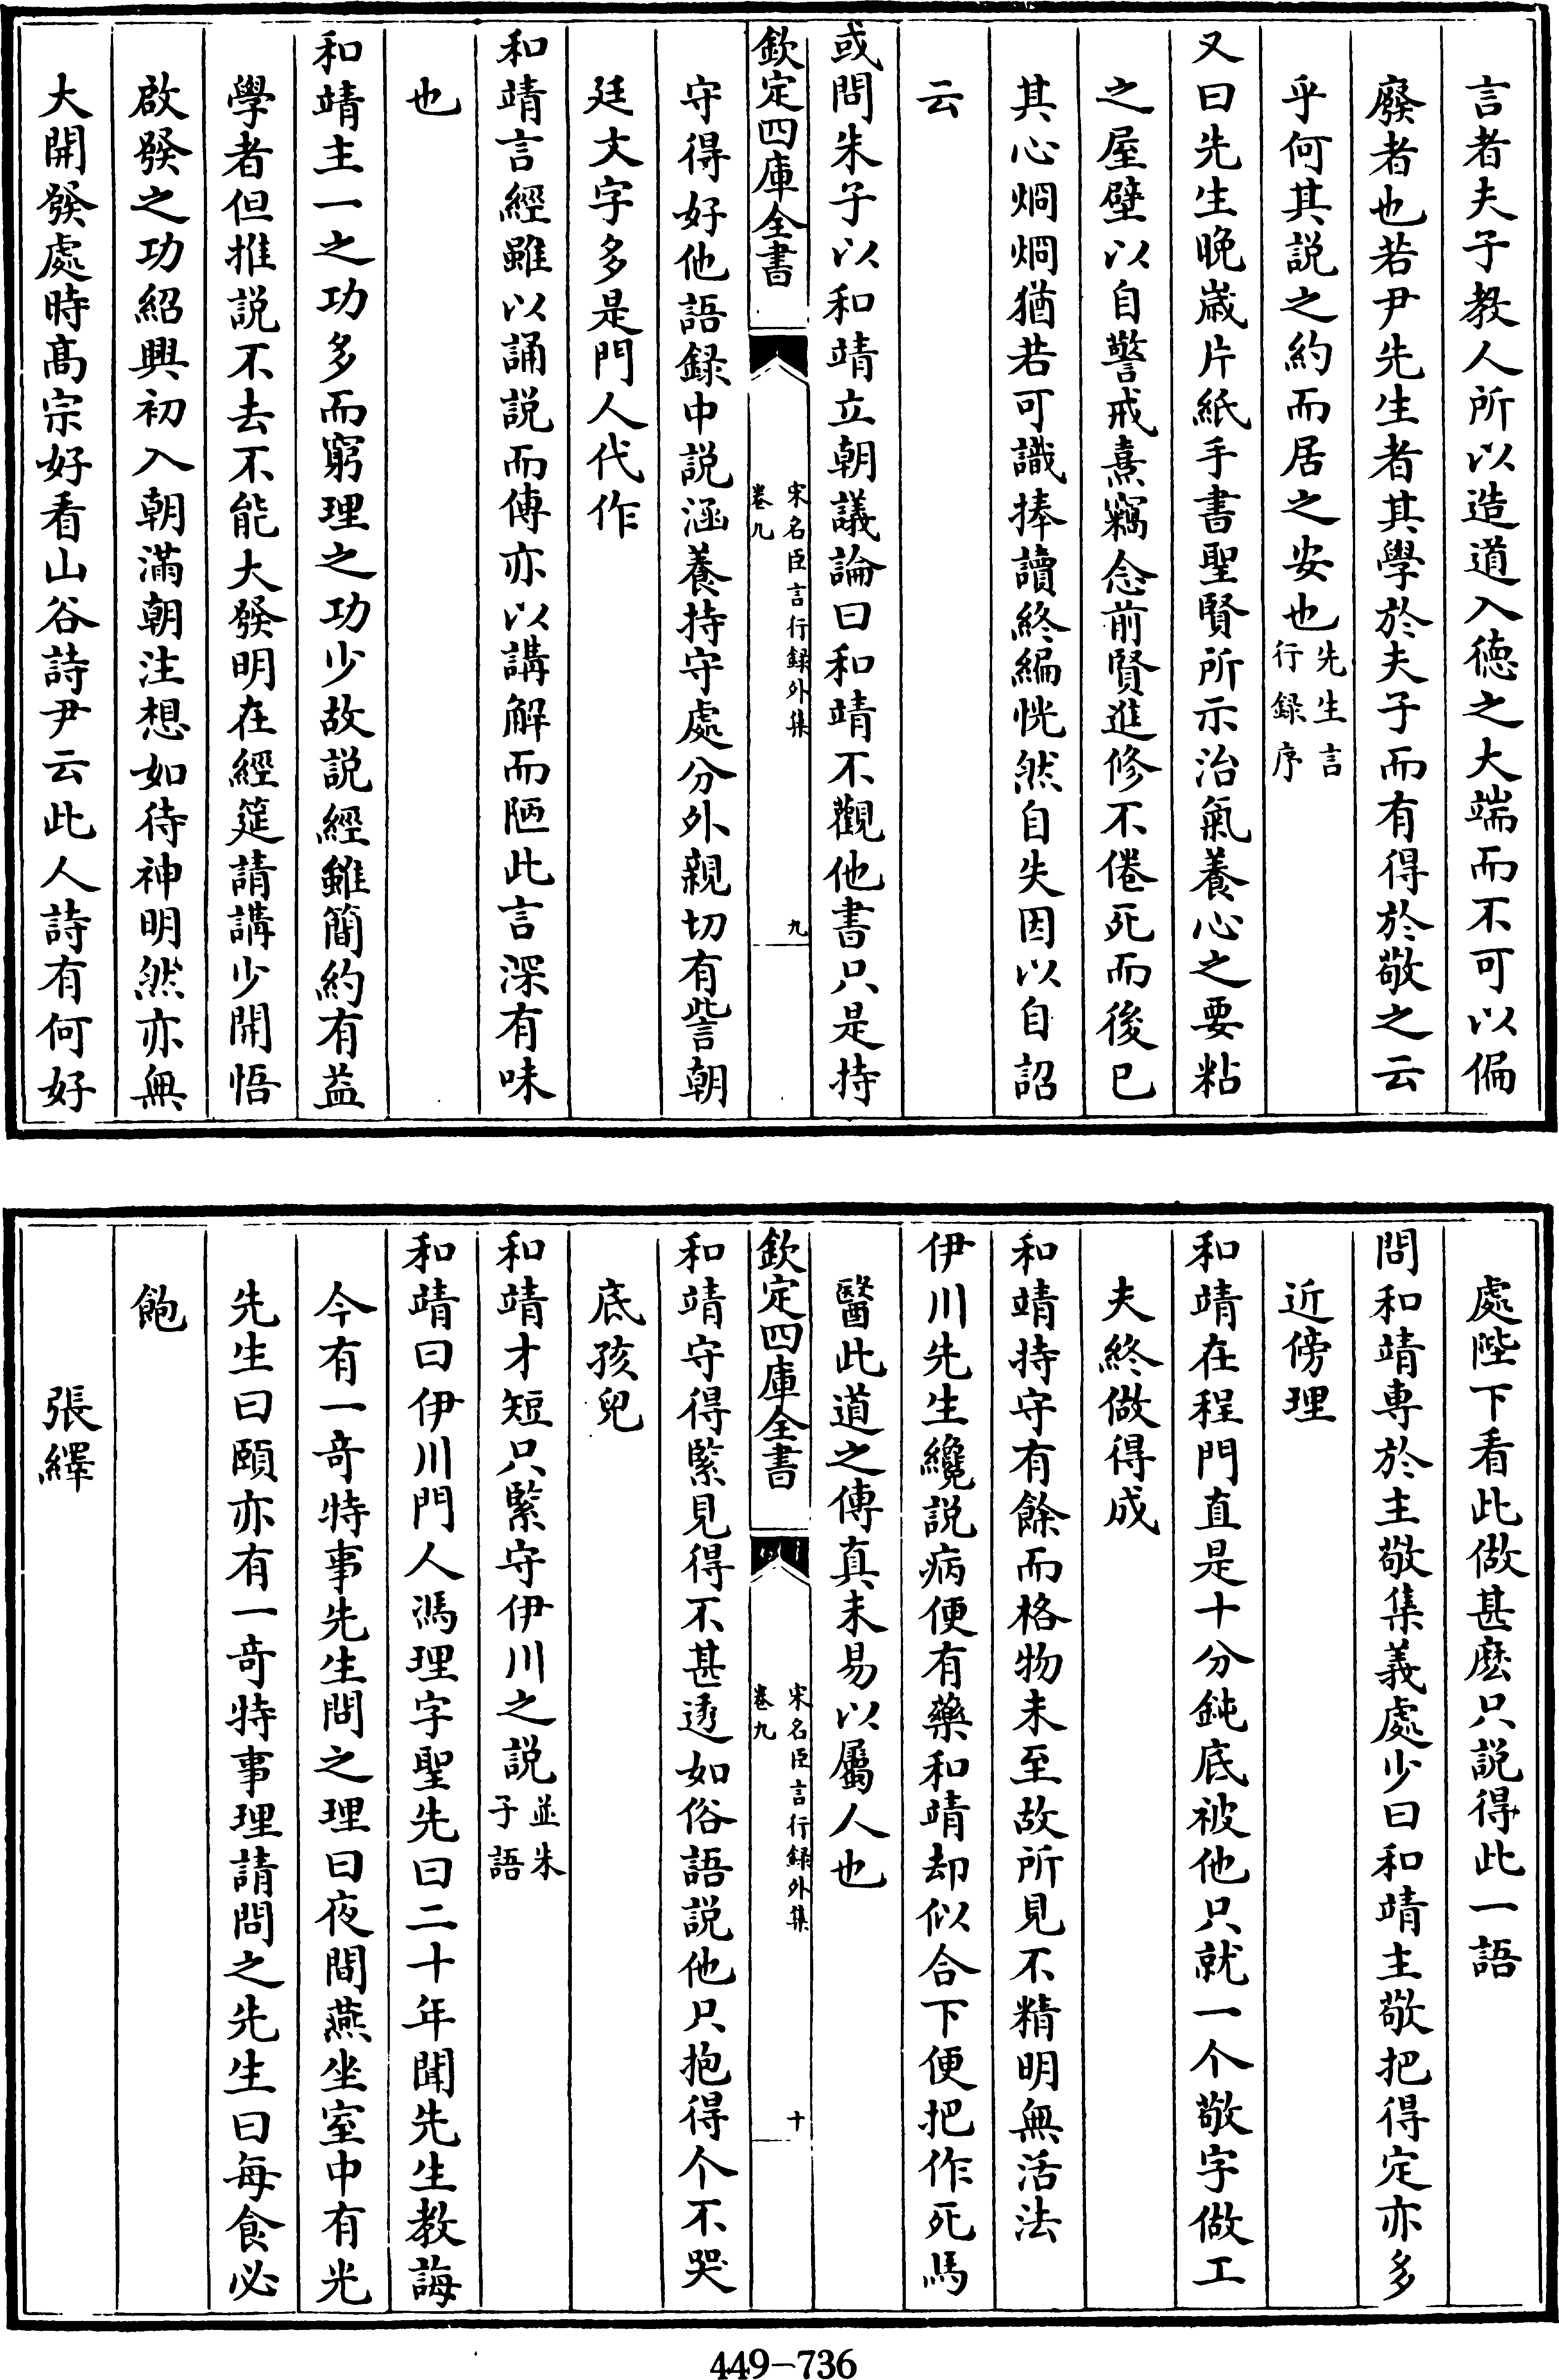 言者夫子教人所以造道入德之大端而不可以偏
廢者也若尹先生者其學於夫子而有得於敬之云
乎何其説之約而居之安也先生言行録序
又曰先生晚嵗片紙手書聖賢所示治氣養心之要粘
之屋壁以自警戒熹竊念前賢進修不倦死而後已
其心烱烱猶若可識捧讀終編恍然自失因以自詔
云
或問朱子以和靖立朝議論曰和靖不觀他書只是持
欽定四庫全書
宋名臣言行録外集
卷九
九
守得好他語録中説涵養持守處分外親切有訾朝
廷文字多是門人代作
和靖言經雖以誦説而傳亦以講解而陋此言深有味
也
和靖主一之功多而窮理之功少故説經雖簡約有益
學者但推説不去不能大發明在經筵請講少開悟
啟發之功紹興初入朝滿朝注想如待神明然亦無
大開發處時髙宗好看山谷詩尹云此人詩有何好
處陛下看此做甚麽只説得此一語
問和靖専於主敬集義處少曰和靖主敬把得定亦多
近傍理
和靖在程門直是十分鈍底被他只就一个敬字做工
夫終做得成
和靖持守有餘而格物未至故所見不精明無活法
伊川先生纔説病便有藥和靖却似合下便把作死馬
醫此道之傳真未易以屬人也
欽定四庫全書
宋名臣言行録外集
卷九
十
和靖守得緊見得不甚透如俗語説他只抱得个不哭
底孩兒
和靖才短只緊守伊川之説並朱子語
和靖曰伊川門人馮理字聖先曰二十年聞先生教誨
今有一竒特事先生問之理曰夜間燕坐室中有光
先生曰頤亦有一竒特事理請問之先生曰每食必
飽
張繹
449-736